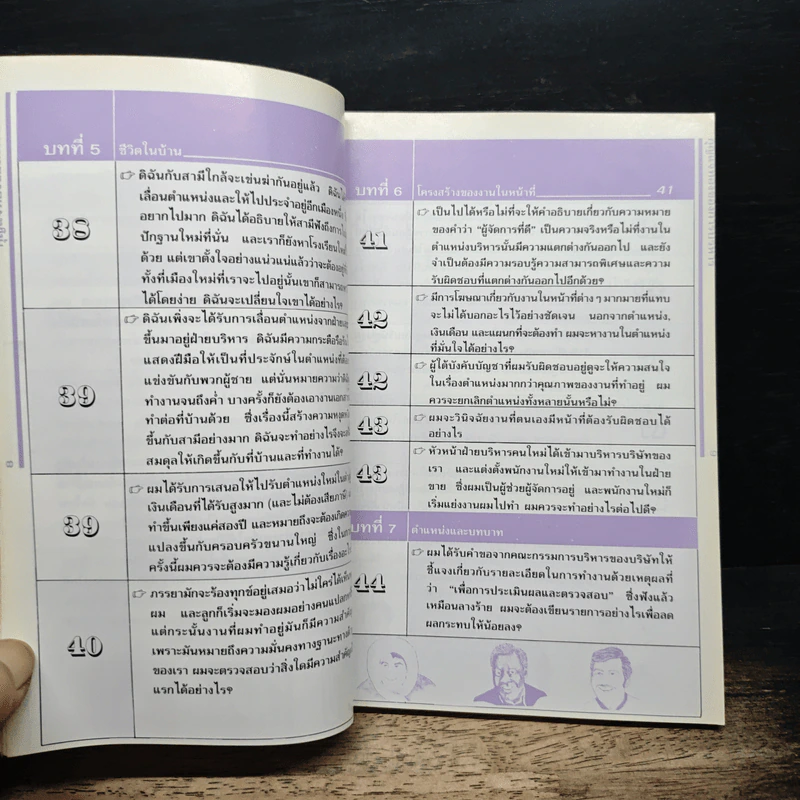 บทที่ 5 ชีวิตในบ้าน
38
☞ ดิฉันกับสามีใกล้จะเข่นฆ่ากันอยู่แล้ว
เลื่อนตำแหน่งและให้ไปประจำอยู่อีกเมืองหนึ่ง
อยากไปมาก ดิฉันได้อธิบายให้สามีฟังถึงการ
ปักฐานใหม่ที่นั่น และเราก็ยังหาโรงเรียนใหม่
ด้วย แต่เขาตั้งใจอย่างแน่วแน่แล้วว่าจะต้อง
ทั้งที่เมืองใหม่ที่เราจะไปอยู่นั้นเขาก็สามารถ
ได้โดยง่าย ดิฉันจะเปลี่ยนใจเขาได้อย่างไร?
39
☞ ดิฉันเพิ่งจะได้รับการเลื่อนตำแหน่งจากฝ่าย
ขึ้นมาอยู่ฝ่ายบริหาร ดิฉันมีความกระตือรือร้น
แสดงฝีมือให้เป็นที่ประจักษ์ในตำแหน่งที่ต้อง
แข่งขันกับพวกผู้ชาย แต่นั่นหมายความว่า
ทำงานจนถึงค่ำ บางครั้งก็ยังต้องเอางานเอกสาร
ทำต่อที่บ้านด้วย ซึ่งเรื่องนี้สร้างความหงุดหงิด
ขึ้นกับสามีอย่างมาก ดิฉันจะทำอย่างไรจึงจะ
สมดุลให้เกิดขึ้นกับที่บ้านและที่ทำงานได้?
39
☞ ผมได้รับการเสนอให้ไปรับตำแหน่งใหม่ใน
เงินเดือนที่ได้รับสูงมาก (และไม่ต้องเสียภาษี)
ทำขึ้นเพียงแค่สองปี และหมายถึงจะต้องเกิด
แปลงขึ้นกับครอบครัวขนานใหญ่ ซึ่งใน
ครั้งนี้ผมควรจะต้องมีความรู้เกี่ยวกับเรื่องอะไร
40
☞ ภรรยามักจะร้องทุกข์อยู่เสมอว่าไม่ใคร่ได้เห็น
ผม และลูกก็เริ่มจะมองผมอย่างคนแปลก
แต่กระนั้นงานที่ผมทำอยู่มันก็มีความสำคัญ
เพราะมันหมายถึงความมั่นคงทางฐานะทาง
ของเรา ผมจะตรวจสอบว่าสิ่งใดมีความสำคัญ
แรกได้อย่างไร?
บทที่ 6 โครงสร้างของงานในหน้าที่ 41
41
☞ เป็นไปได้หรือไม่ที่จะให้คำอธิบายเกี่ยวกับความหมาย
ของคำว่า "ผู้จัดการที่ดี" เป็นความจริงหรือไม่ที่งานใน
ตำแหน่งบริหารนั้นมีความแตกต่างกันออกไป และยัง
จำเป็นต้องมีความรอบรู้ความสามารถพิเศษและความ
รับผิดชอบที่แตกต่างกันออกไปอีกด้วย?
42
☞ มีการโฆษณาเกี่ยวกับงานในหน้าที่ต่าง ๆ มากมายที่แทบ
จะไม่ได้บอกอะไรไว้อย่างชัดเจน นอกจากตำแหน่ง,
เงินเดือน และแผนกที่จะต้องทำ ผมจะหางานในตำแหน่ง
ที่มั่นใจได้อย่างไร?
42
☞ ผู้ใต้บังคับบัญชาที่ผมรับผิดชอบอยู่ดูจะให้ความสนใจ
ในเรื่องตำแหน่งมากกว่าคุณภาพของงานที่ทำอยู่ ผม
ควรจะยกเลิกตำแหน่งทั้งหลายนั้นหรือไม่?
43
☞ ผมจะวินิจฉัยงานที่ตนเองมีหน้าที่ต้องรับผิดชอบได้
อย่างไร
43
☞ หัวหน้าฝ่ายบริหารคนใหม่ได้เข้ามาบริหารบริษัทของ
เรา และแต่งตั้งพนักงานใหม่ให้เข้ามาทำงานในฝ่าย
ขาย ซึ่งผมเป็นผู้ช่วยผู้จัดการอยู่ และพนักงานใหม่ก็
เริ่มแย่งงานผมไปทำ ผมควรจะทำอย่างไรต่อไปดี?
บทที่ 7 ตำแหน่งและบทบาท
44
☞ ผมได้รับคำขอจากคณะกรรมการบริหารของบริษัทให้
ชี้แจงเกี่ยวกับรายละเอียดในการทำงานด้วยเหตุผลที่
ว่า "เพื่อการประเมินผลและตรวจสอบ" ซึ่งฟังแล้ว
เหมือนลางร้าย ผมจะต้องเขียนรายการอย่างไรเพื่อลด
ผลกระทบให้น้อยลง?